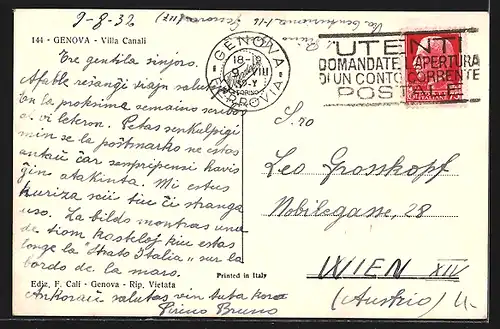 9-8-32
144 - GENOVA - Villa Canali
Tre gentila sinjoro.
Afable resanĝi viajn salutojn
En la proksima semaino scribos
al vi leteron. Petas senkulpigi
min se la poŝtmarko ne estos
antaŭ ĉar senpripensi havis
ĝin atakinta. Mi estus
kuriza sciu tiu ĉi stranga
uso. La bildo montras una
de tiom kasteloj kiu estas
longe la "Stato Italia" sur la
bordo de la maro.
Ediz. F. Cali - Genova - Rip. Vietata
Ankoraŭ salutas vin tuta kora
Bruno
Printed in Italy
GENOVA
FERROVIA
18-19
9 VIII
UTENTI
DOMANDATE L'APERTURA
DI UN CONTO CORRENTE
POSTALE
S.ro
Leo Grosskopf
Nobilegasse, 28
WIEN XIV
(Austrio)